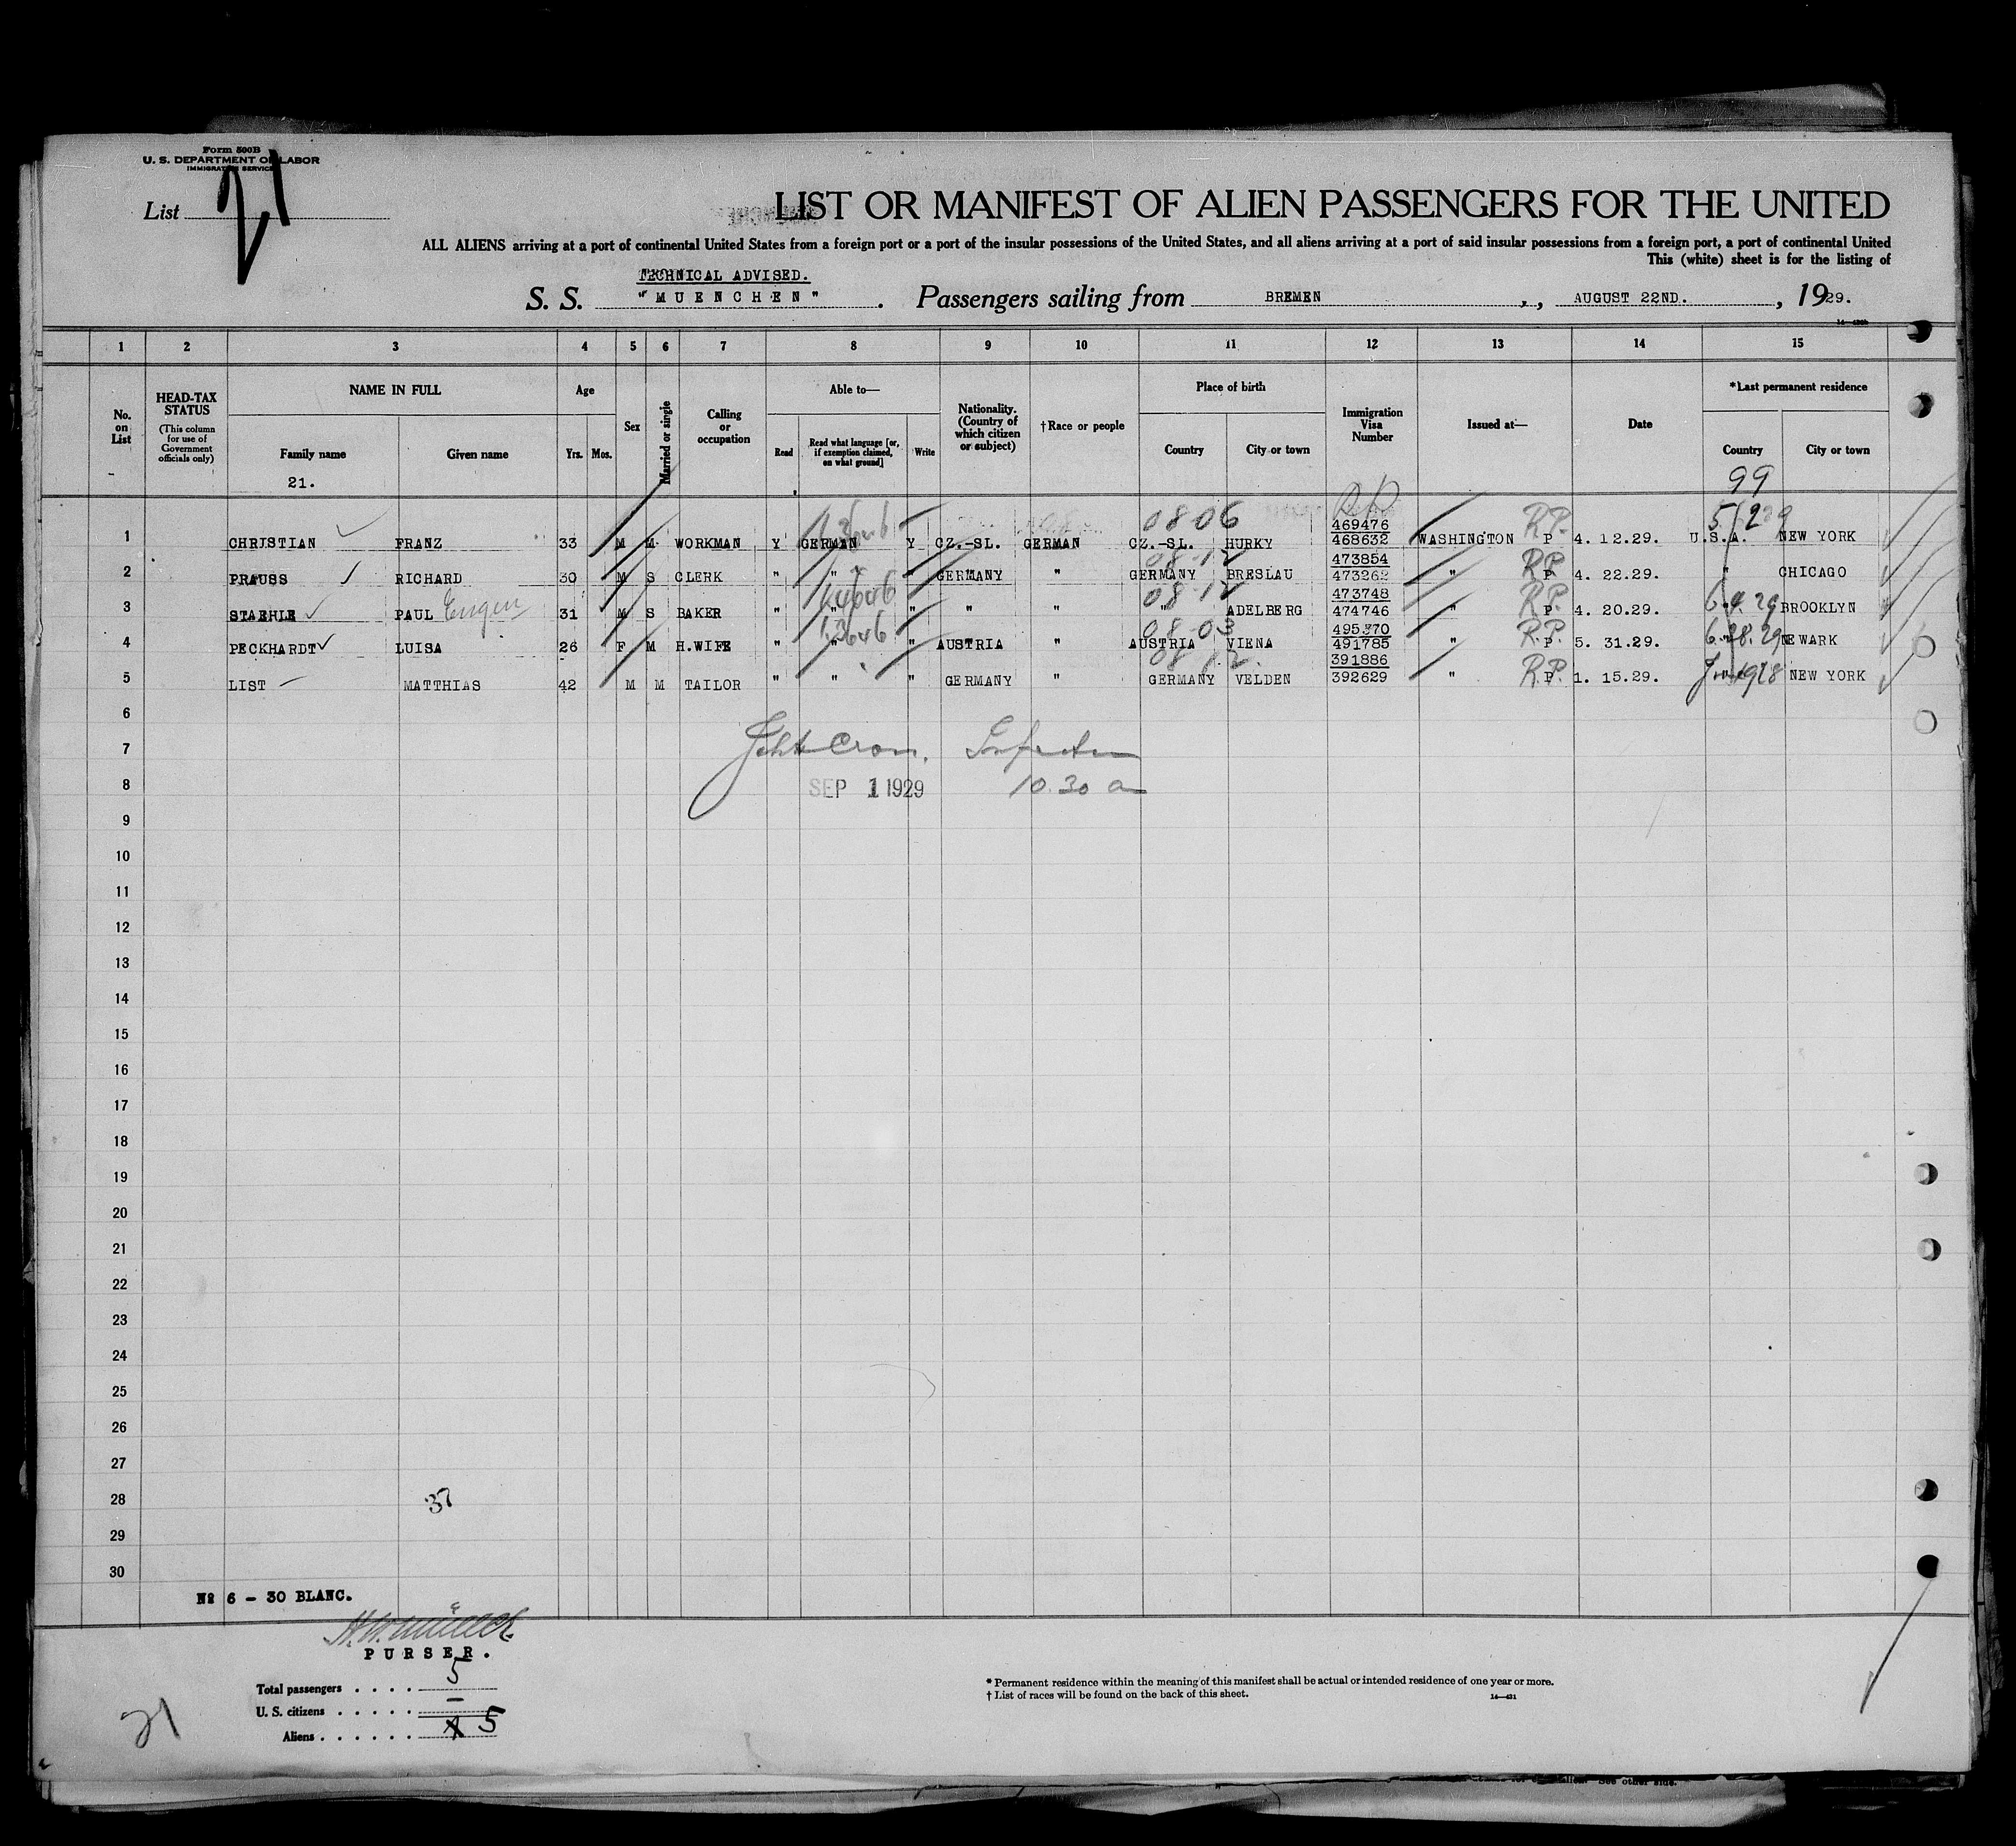 Form 500B
U. S. DEPARTMENT OF LABOR
IMMIGRATION SERVICE
List 21
LIST OR MANIFEST OF ALIEN PASSENGERS FOR THE UNITED
ALL ALIENS arriving at a port of continental United States from a foreign port or a port of the insular possessions of the United States, and all aliens arriving at a port of said insular possessions from a foreign port, a port of continental United
This (white) sheet is for the listing of
TECHNICAL ADVISED.
S. S. "MUENCHEN". Passengers sailing from BREMEN, AUGUST 22ND., 1929.
1 2 3 4 5 6 7 8 9 10 11 12 13 14 15
No. on List
HEAD-TAX STATUS (This column for use of Government officials only)
NAME IN FULL
Family name
Given name
21.
Age
Yrs. Mos.
Sex
Married or single
Calling or occupation
Able to—
Read
Read what language [or, if exemption claimed, on what ground]
Write
Nationality. (Country of which citizen or subject)
†Race or people
Place of birth
Country
City or town
Immigration Visa Number
Issued at—
Date
*Last permanent residence
Country
City or town
99
08-06
469476
1 CHRISTIAN FRANZ 33 M M WORKMAN Y GERMAN Y CZ.-SL. GERMAN CZ.-SL. HURKY 468632 WASHINGTON R.P. P 4. 12.29. U.S.A. NEW YORK
08-12
473854
2 PRAUSS RICHARD 30 M S CLERK " " " GERMANY " GERMANY BRESLAU 473262 " R.P. P 4. 22.29. " CHICAGO
08-12
473748
3 STAEHLE PAUL Eugen 31 M S BAKER " " " " " " ADELBERG 474746 " R.P. P. 4. 20.29. 6.9.29 BROOKLYN
08-03
495370
4 PECKHARDT LUISA 26 F M H.WIFE " " " AUSTRIA " AUSTRIA VIENA 491785 " R.P. P 5. 31.29. 6.28.29 NEWARK
08-12.
391886
5 LIST MATTHIAS 42 M M TAILOR " " " GERMANY " GERMANY VELDEN 392629 " R.P. P 1. 15.29. 1928 NEW YORK
6
7
8 SEP 1 1929 10.30 a
9
10
11
12
13
14
15
16
17
18
19
20
21
22
23
24
25
26
27
28 37
29
30
No 6 - 30 BLANC.
PURSER.
Total passengers . . . . 5
U. S. citizens . . . . . –
Aliens . . . . . . 5
21
* Permanent residence within the meaning of this manifest shall be actual or intended residence of one year or more.
† List of races will be found on the back of this sheet.
14—421